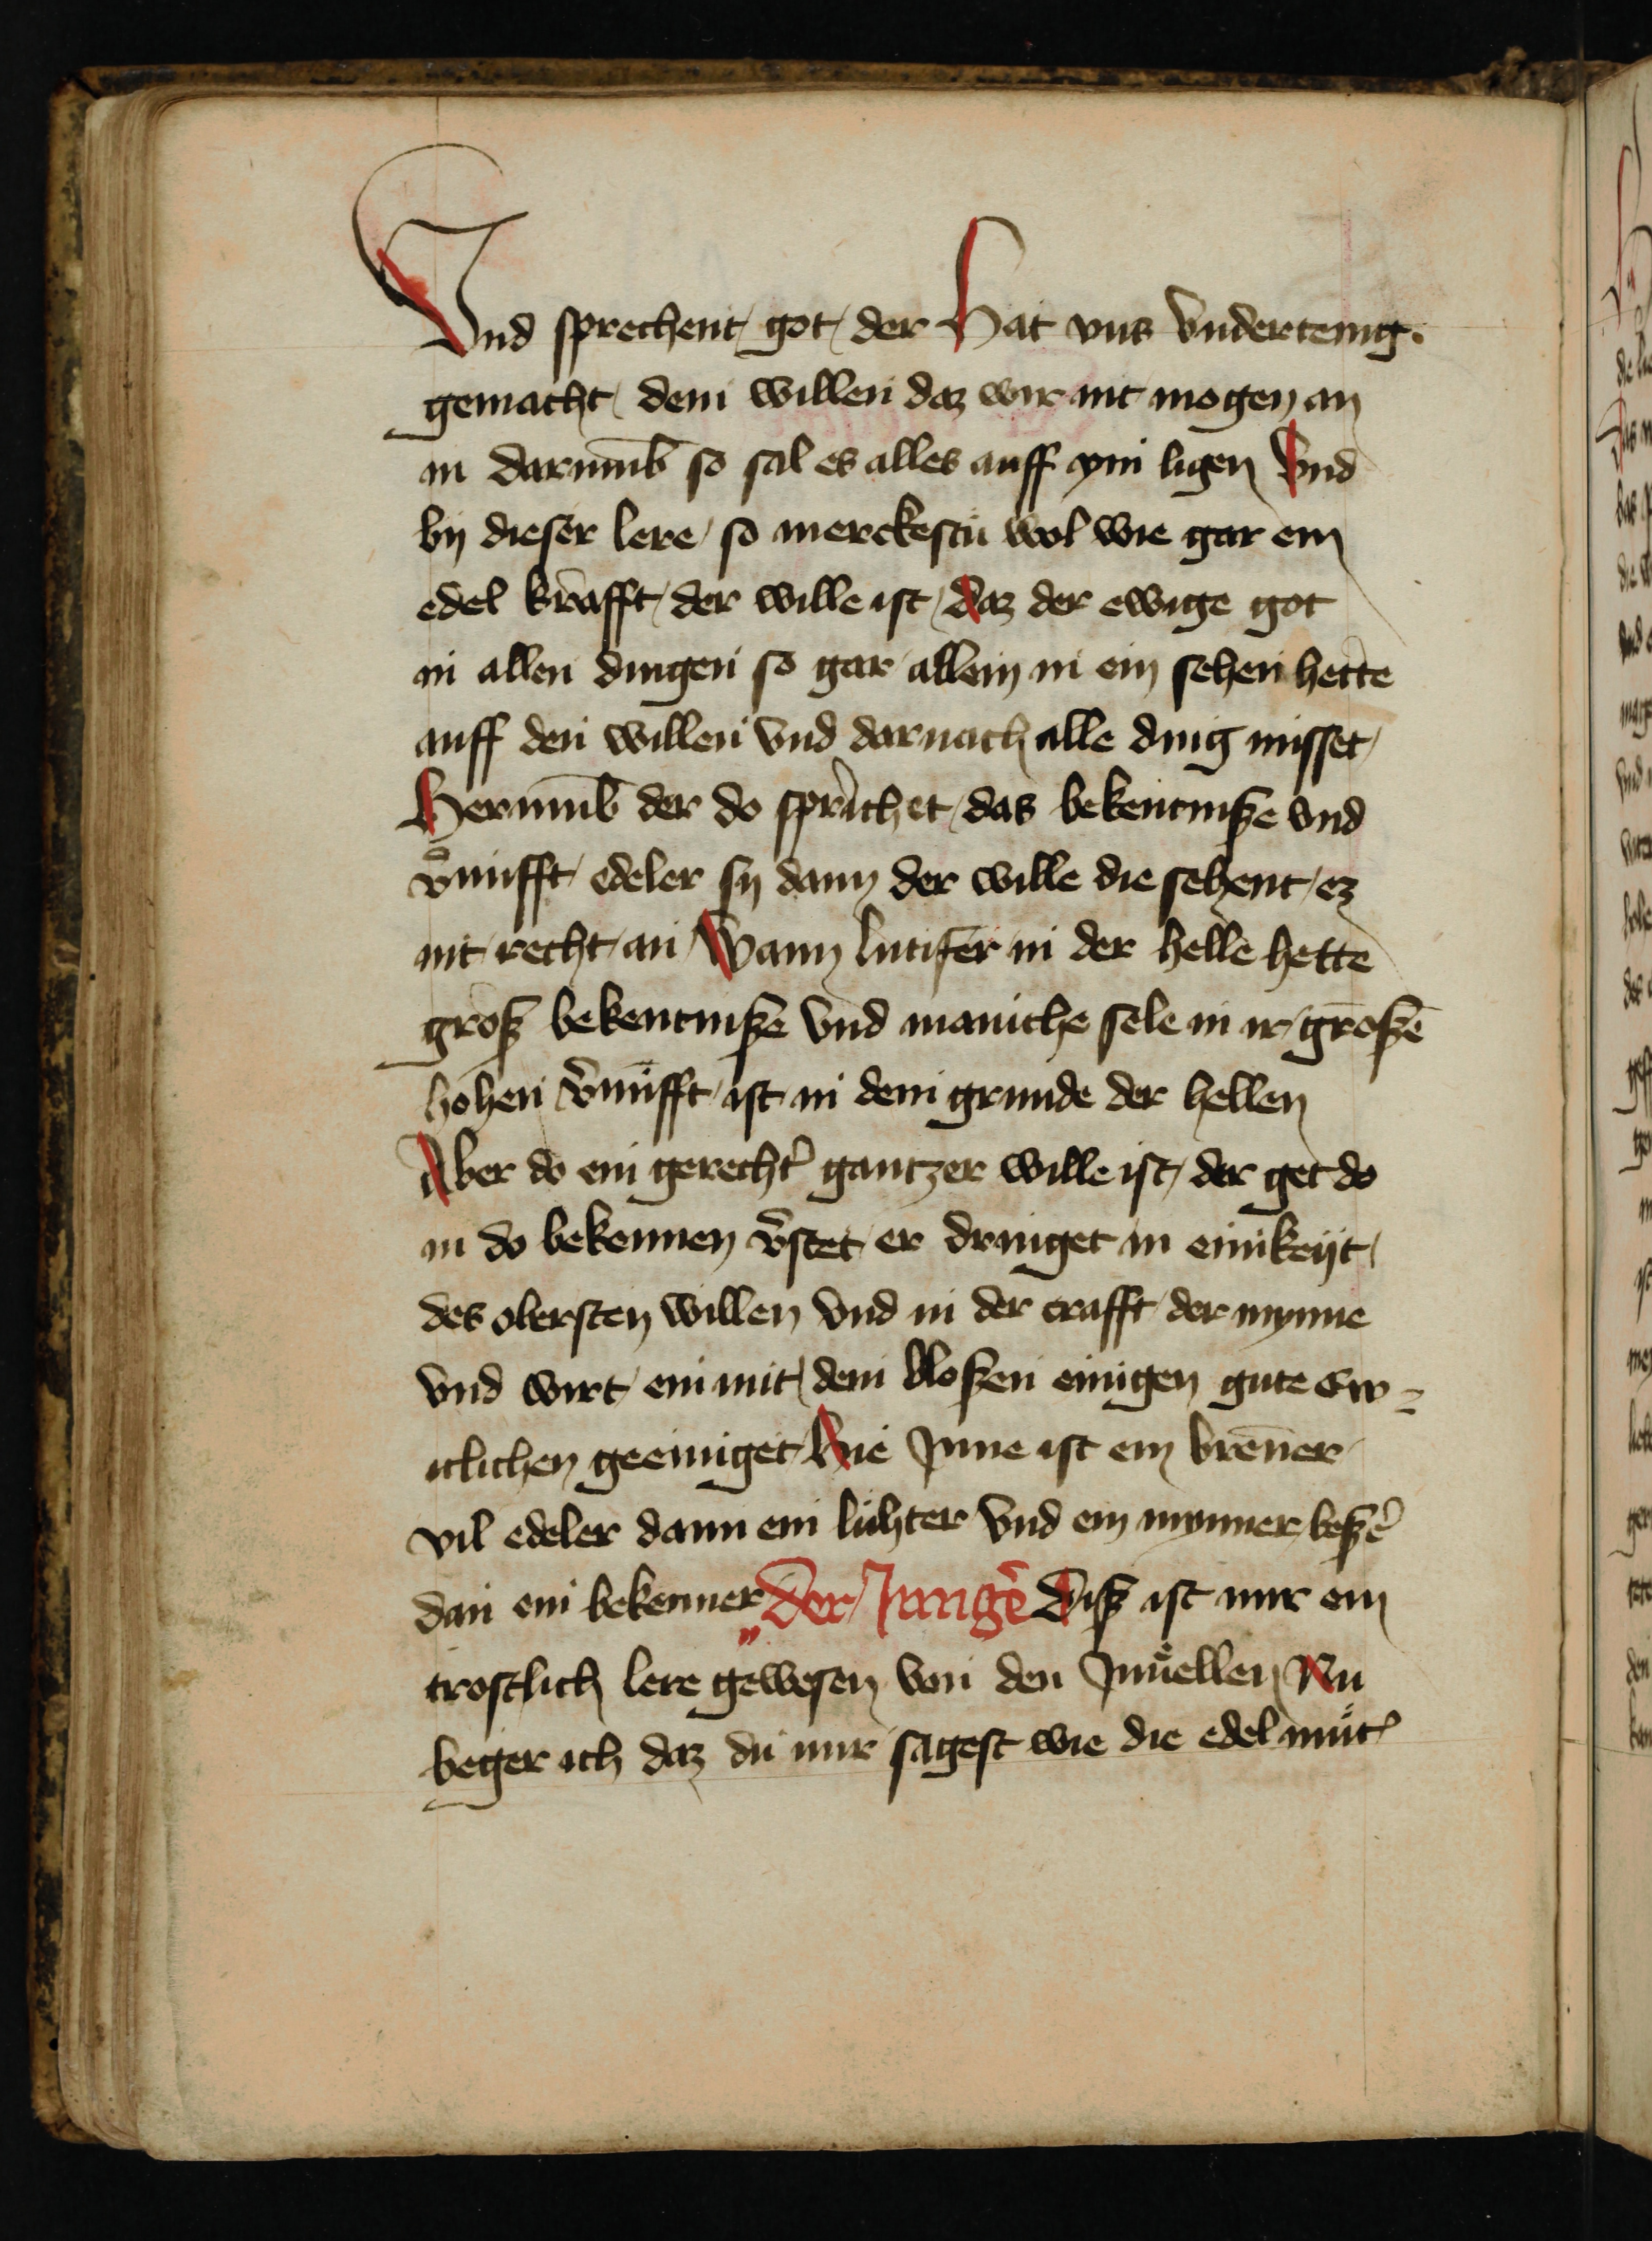 Vnd sprechent got der Hat vns vndertenig
gemacht dem willen daz wir nit mogen an
in darumb so sal es alles auff ym ligen Vnd
by dieser lere so merckestu wol wie gar ein
edel krafft der wille ist Daz der ewige got
in allen dingen so gar allein in ein sehen hette
auff den willen vnd darnach alle ding misset
Herumb der do sprichet das bekentnisze vnd
v̊nufft edeler sy dann der wille die sehent ez
nit recht an Wann lucifer in der helle hette
grosz bekentnisze vnd maniche sele in ir groszē
hohen v̾nufft ist in dem grunde der hellen
Aber do ein gerecht̾ gantzer wille ist der get do
in do bekennen v̾stet er dringet in einikeyt
des obersten willen vnd in der crafft der mynne
vnd wirt ein mit dem bloszen einigen gute ew=
iclichen geeiniget Hie Inne ist ein brenner
vil edeler dann ein luhter vnd ein mynner besze̾
dan ein bekenner Der Junge̾ Disz ist mir ein
trostlich lere gewesen von den Juuellen Nu
beger ich daz du mir sagest wie die edel mut̾